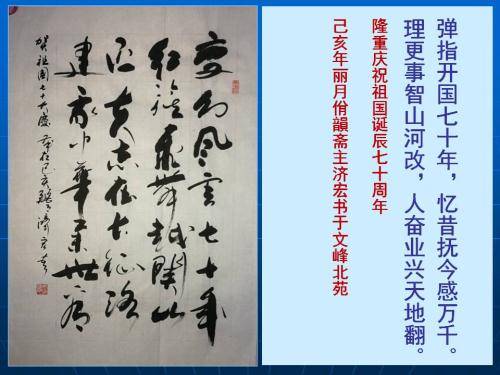 弹指开国七十年，忆昔抚今感万千。
理更事智山河改，人奋业兴天地翻。
隆重庆祝祖国诞辰七十周年
己亥年丽月佾韻斋主济宏书于文峰北苑
变幻风云七十年
红旗舞越關山
志在长征路
建我中華世
贺祖國七十大慶 己亥 济宏书